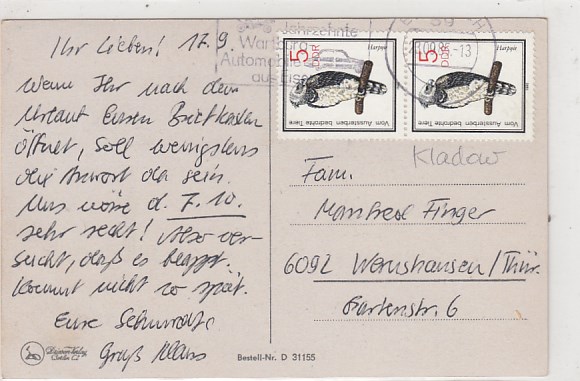 Ihr Lieben! 17.9.
Wenn Ihr nach dem
Urlaub Euren Briefkasten
öffnet, soll wenigstens
die Antwort da sein.
Uns wäre d. 7.10.
sehr recht! Also ver-
sucht, daß es klappt.
Kommt nicht so spät.
Eure
Gruß Klaus
Jahrzehnte
Wartburg
Automobile
aus Eisenach
59
-13
5 DDR
Harpyie
Vom Aussterben bedrohte Tiere
5 DDR
Harpyie
Vom Aussterben bedrohte Tiere
Kladow
Fam.
Manfred Finger
6092 Wernshausen/Thür.
Gartenstr. 6
Bestell-Nr. D 31155